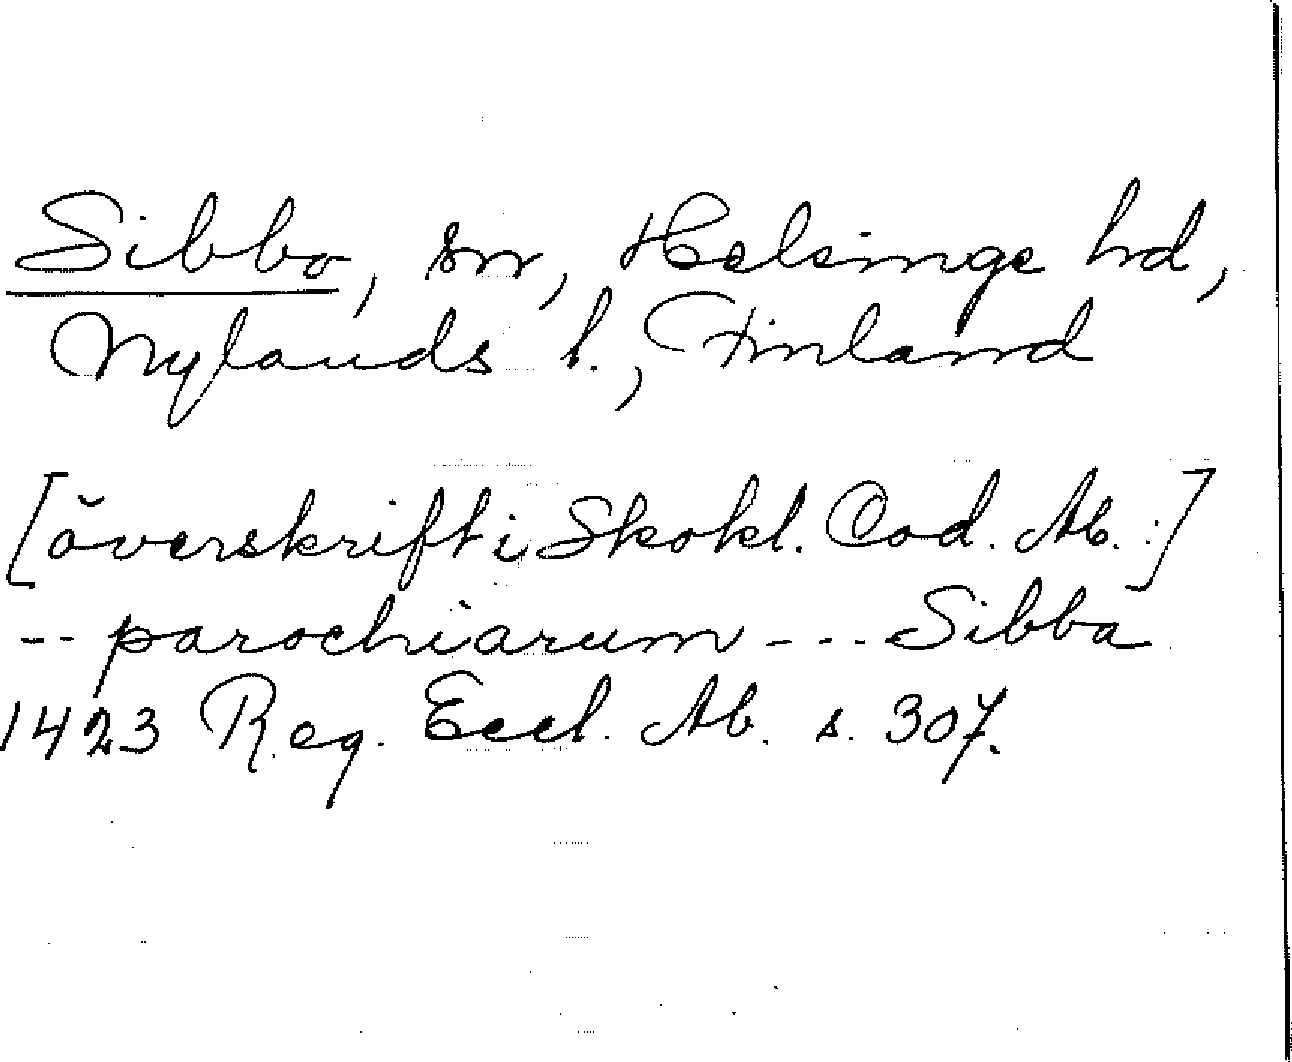 Sibbo, sn, Helsinge hd,
Nylands l., Finland
[överskrift i Skokl. Cod. Ab.:]
-- parochiarum --- Sibba
1423 Reg. Eccl. Ab. s. 307.